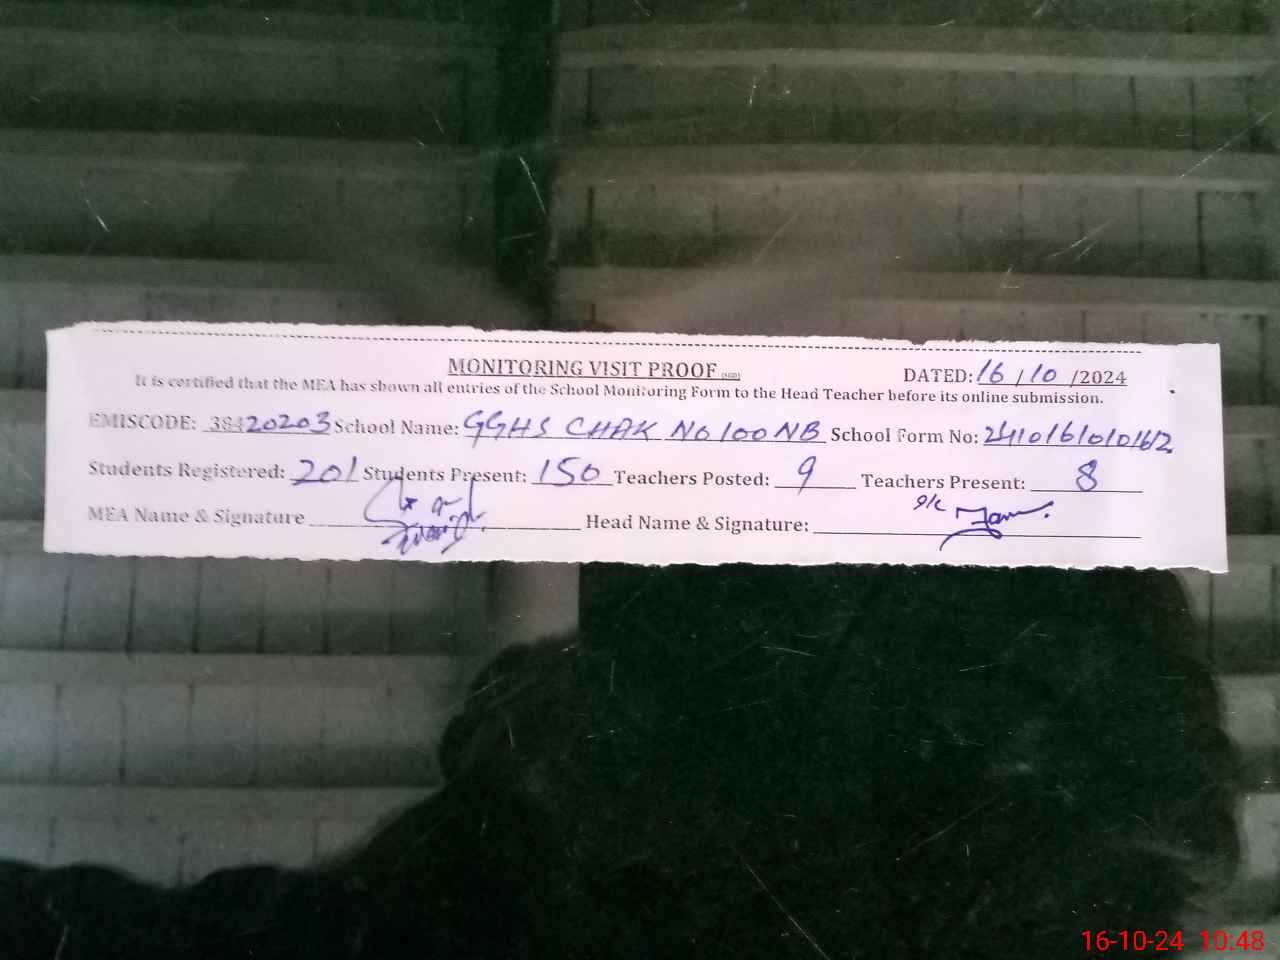 MONITORING VISIT PROOF
DATED: 16 / 10 /2024
It is certified that the MEA has shown all entries of the School Monitoring Form to the Head Teacher before its online submission.
EMISCODE: 38420203 School Name: GGHS CHAK NO 100 NB School Form No:
Students Registered: 201 Students Present: 150 Teachers Posted: 9 Teachers Present: 8
MEA Name & Signature Head Name & Signature:
16-10-24 10:48